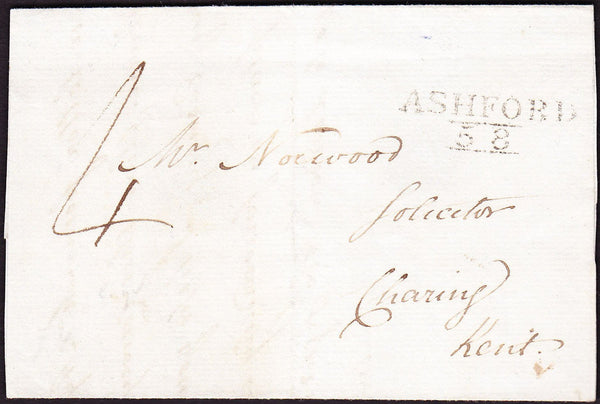 ASHFORD
58
4
Mr. Norwood
Solicitor
Charing
Kent.